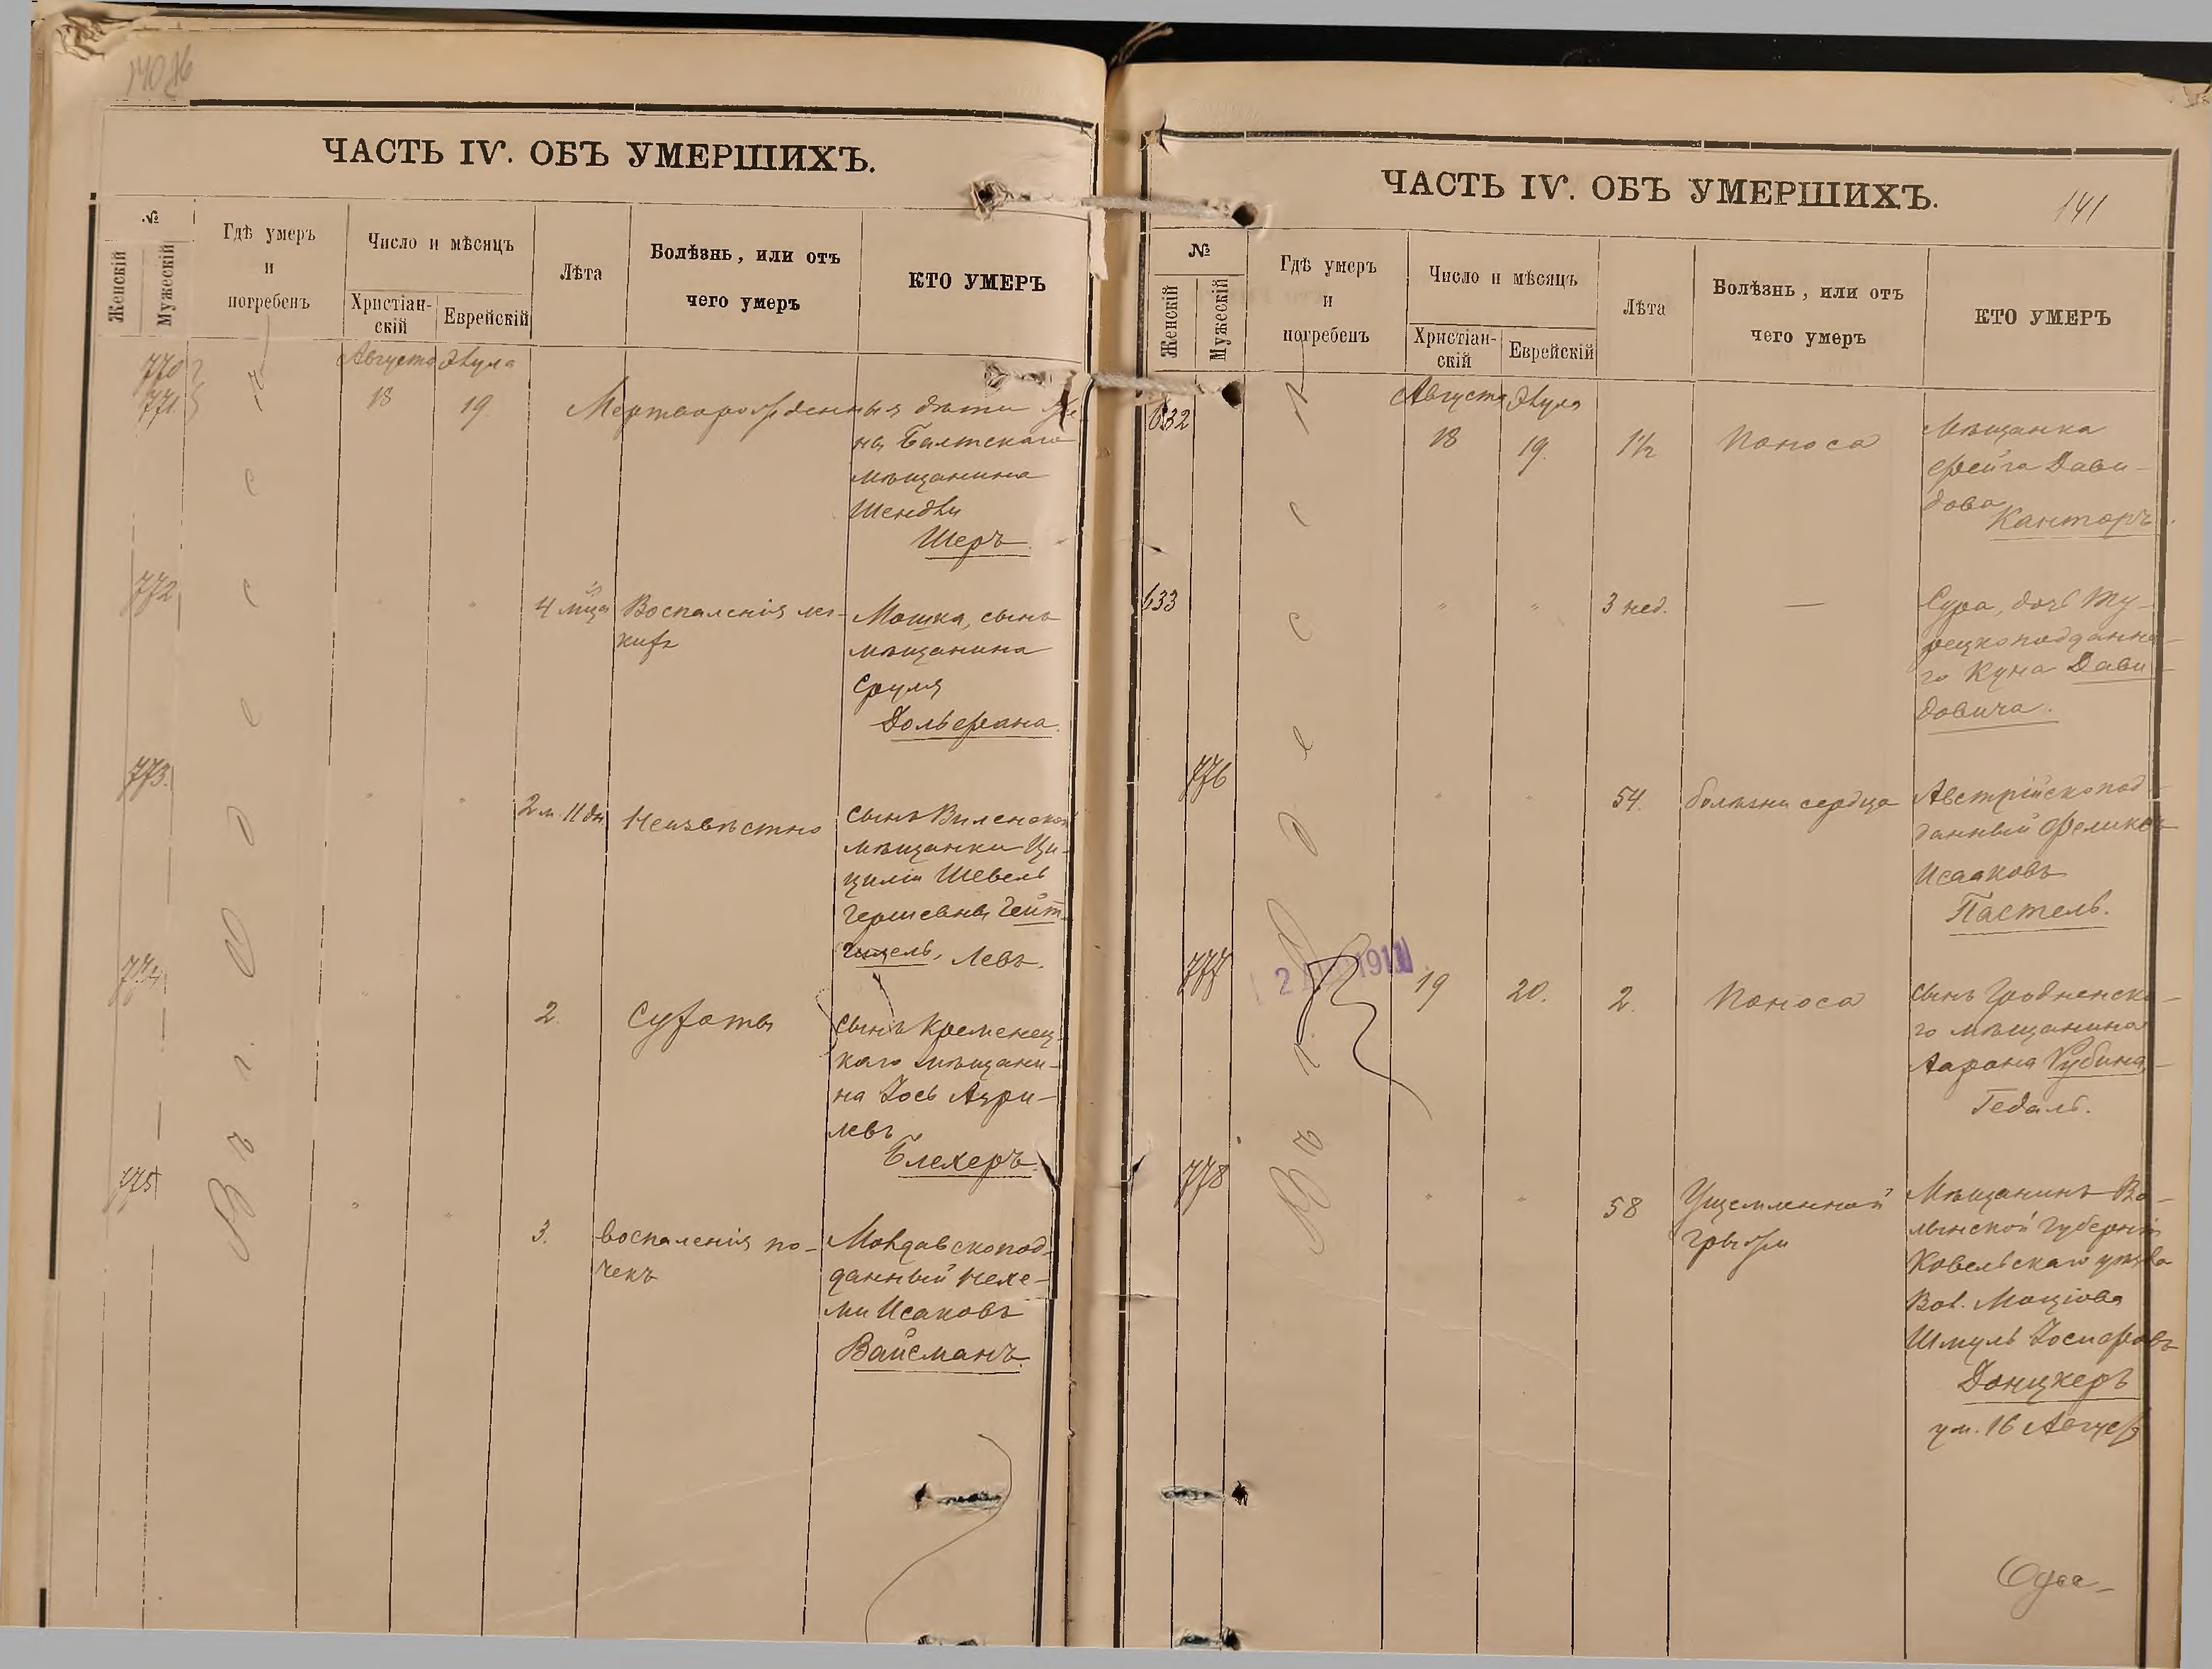 140 об
ЧАСТЬ IV. ОБЪ УМЕРШИХЪ.
№
Женскій
Мужескій
Гдѣ умеръ
и
погребенъ
Число и мѣсяцъ
Христіан-
скій
Еврейскій
Лѣта
Болѣзнь, или отъ
чего умеръ
КТО УМЕРЪ
Въ г. Одессѣ
770
771
Августа Элула
18 19.
Мертворожденныя дѣти
на Балтскаго
мѣщанина
Шендли
Шеръ.
772
" "
4 мца
Воспаленія лег-
кихъ
Мошка, сынъ
мѣщанина
Сруля
Дольфана.
773.
" "
2 м. 11 дн
Неизвѣстно
Сынъ Виленской
мѣщанки Ци-
циліи Шевель
Гершевны Гейт-
лер, Левъ.
774
" "
2.
Сухоты
Сынъ Кременец-
каго мѣщани-
на Іось Азри-
левъ
Блехеръ.
775
" "
3.
Воспаленія по-
чекъ
Молдавскопод-
данный Нехе-
ми Исаковъ
Вайсманъ.
ЧАСТЬ IV. ОБЪ УМЕРШИХЪ.
141
№
Женскій
Мужескій
Гдѣ умеръ
и
погребенъ
Число и мѣсяцъ
Христіан-
скій
Еврейскій
Лѣта
Болѣзнь, или отъ
чего умеръ
КТО УМЕРЪ
Въ г. Одессѣ
632
Августа Элула
18 19.
1½
Поноса
Мѣщанка
Фейга Дави-
дова Канторъ.
633
" "
3 нед.
—
Сура, дочь Ту-
рецкоподданна-
го Куна Дави-
довича.
776
" "
54.
Болѣзни сердца
Австрійскопод-
данный Феликсъ
Исааковъ
Пастель.
777
2 1911
19 20.
2.
Поноса
Сынъ Гродненска-
го мѣщанина
Аарона Рубина,
Гедаль.
778
" "
58
Ущемленной
грыжи
Мѣщанинъ Во-
лынской Губерніи
Ковельскаго уѣзда
Мациова
Шмуль Іосифовъ
Данцкеръ
ум. 16 Августа
Одес-